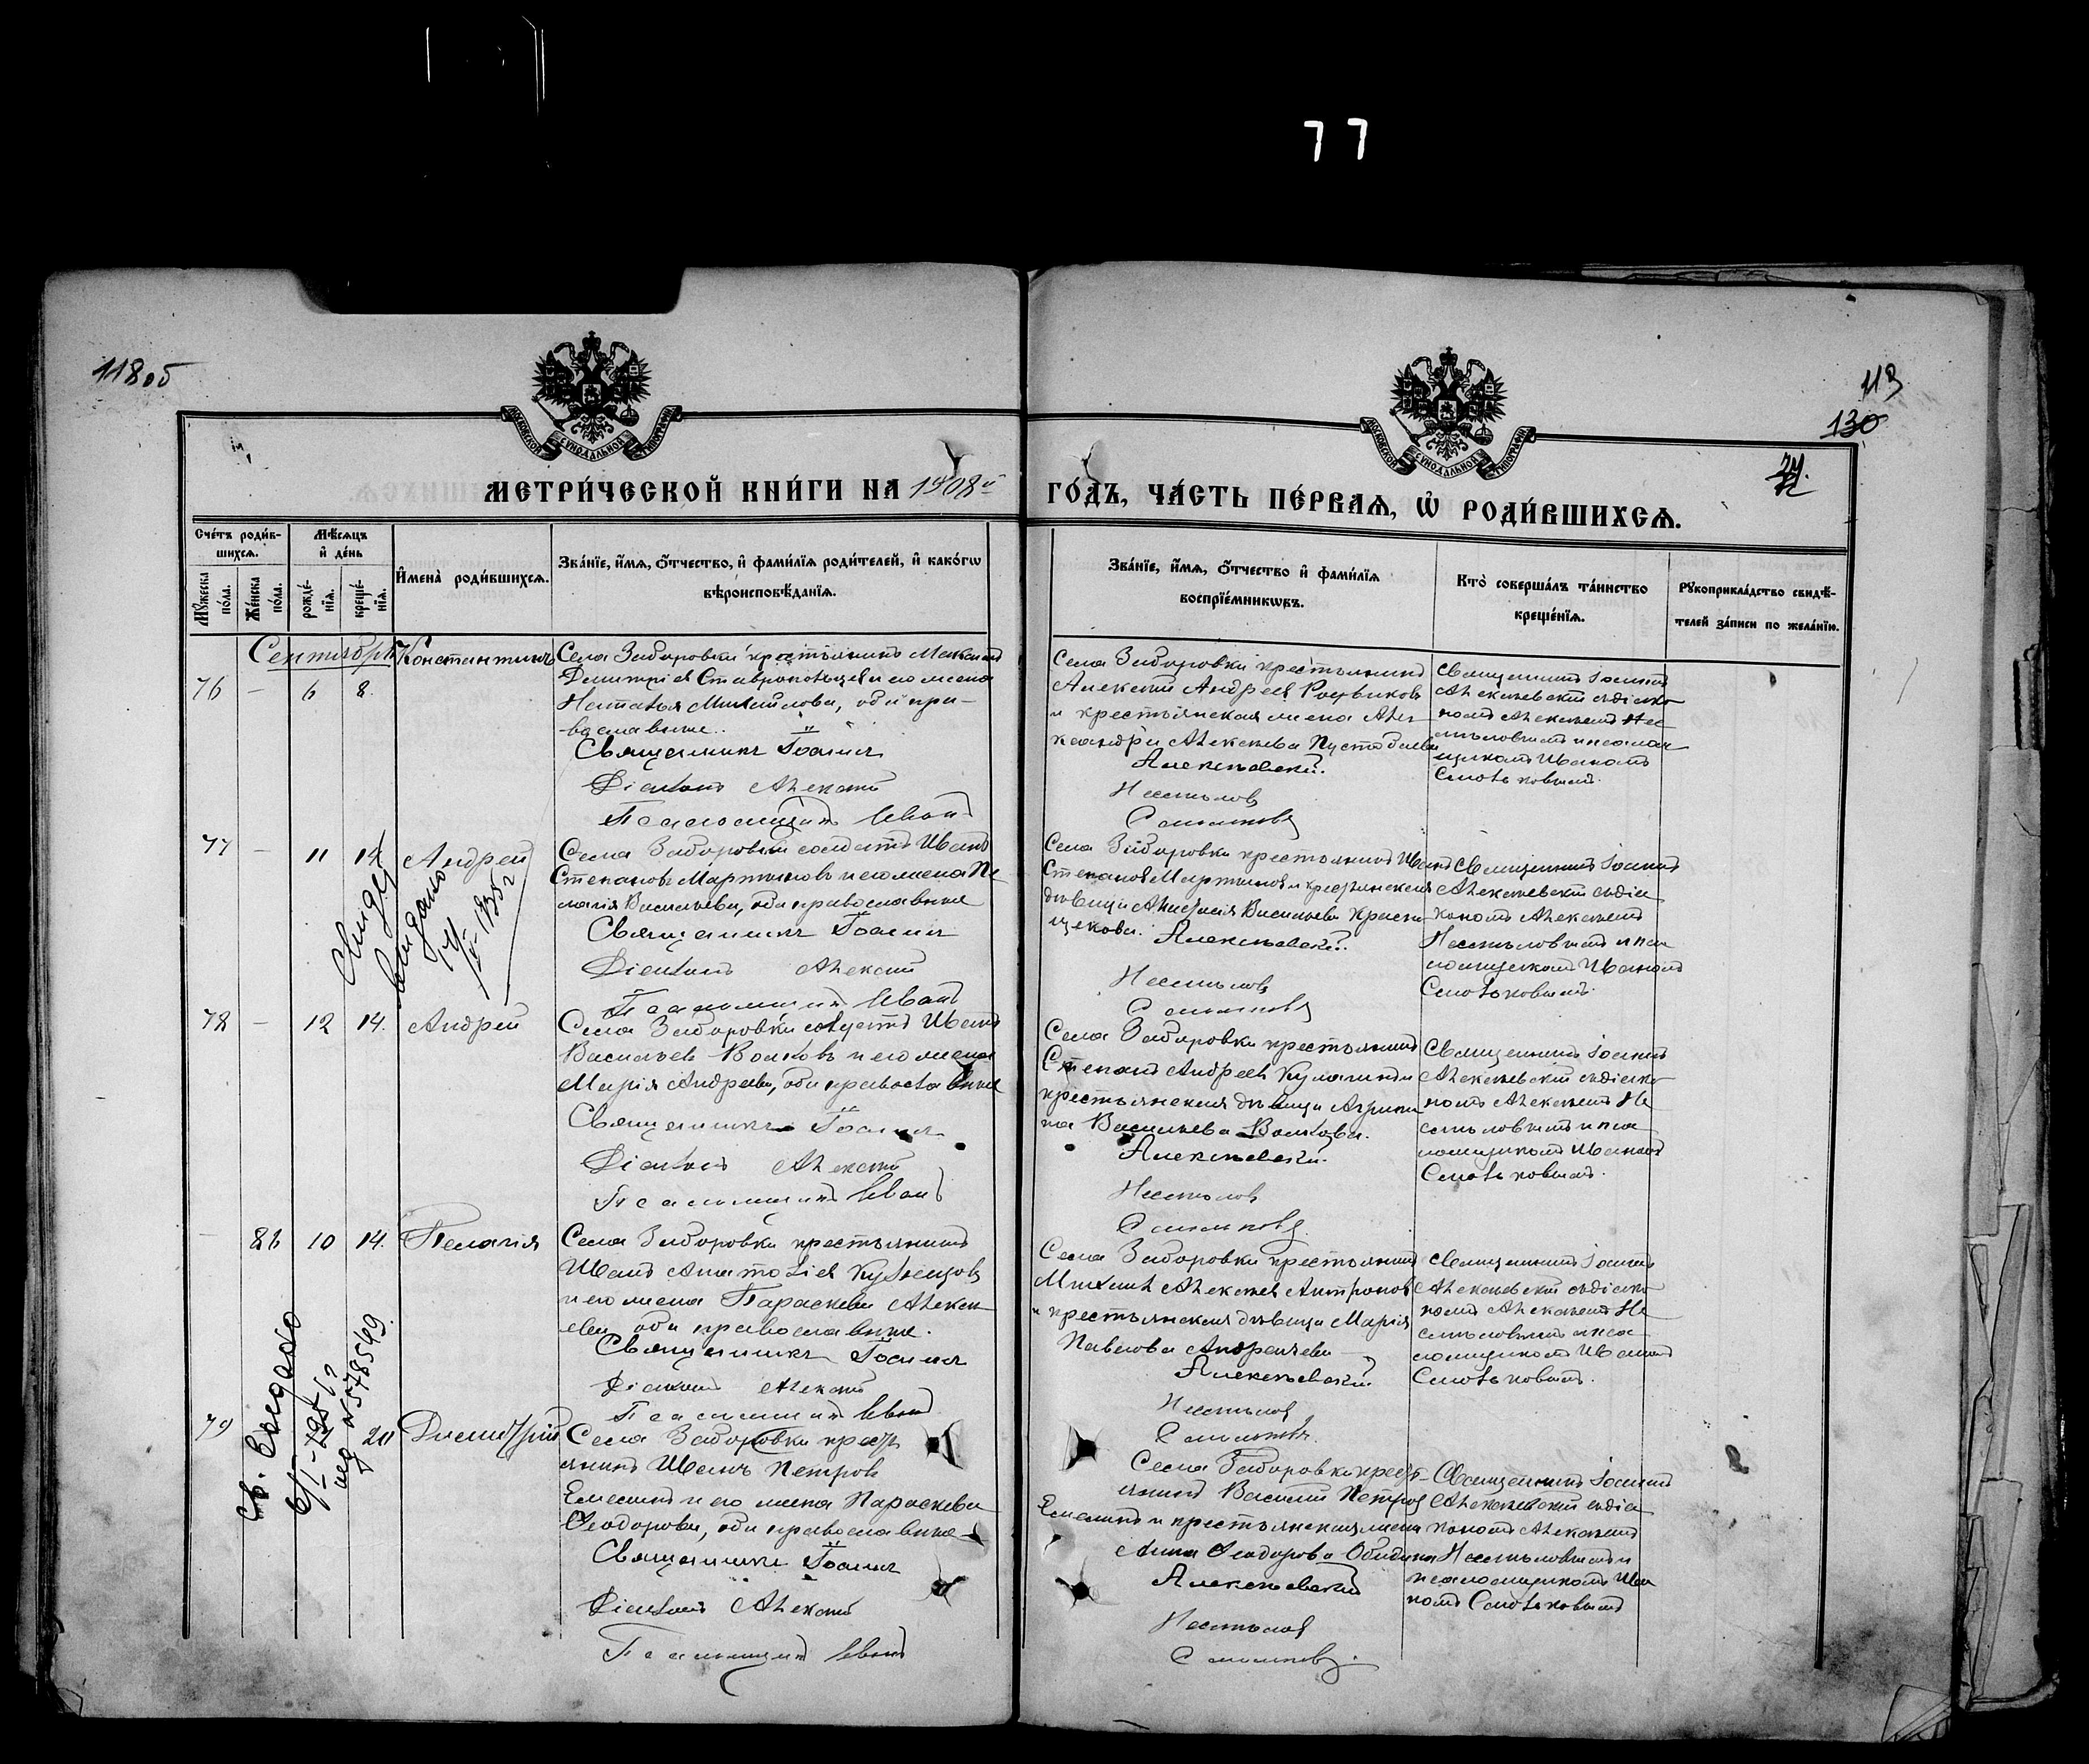 77
118об
113
130
МОСКОВСКОЙ СУНОДАЛЬНОЙ ТИПОГРАФІИ
МОСКОВСКОЙ СУНОДАЛЬНОЙ ТИПОГРАФІИ
МЕТРИ́ЧЕСКОЙ КНИ́ГИ НА 1908й ГО́ДЪ, ЧА́СТЬ ПЕ́РВАѦ, Ѡ҆ РОДИ́ВШИХСѦ.
Сче́тъ роди́в-
шихсѧ.
Мꙋ́жеска по́ла.
Же́нска по́ла.
Мѣ́сѧцъ и҆ де́нь
рожде́-нїѧ.
креще́-нїѧ.
И҆мена̀ роди́вшихсѧ.
Зва́нїе, и҆́мѧ, ѻ҆́тчество, и҆ фами́лїѧ роди́телей, и҆ како́гѡ
вѣроисповѣ́данїѧ.
Зва́нїе, и҆́мѧ, ѻ҆́тчество и҆ фами́лїѧ
воспрїе́мникѡвъ.
Кто̀ соверша́лъ та́инство
креще́нїѧ.
Рꙋкоприкла́дство свидѣ́-
телей за́писи по жела́нїю.
Сентябрь
76 - 6 8. Константинъ
Села Заборовки крестьянинъ Максимъ
Димитріев Ставропольцев и его жена
Наталья Михайлова, оба пра-
вославные.
Священникъ Іоаннъ
Діаконъ Алексій
Псаломщикъ Иванъ
Села Заборовки крестьянинъ
Алексѣй Андреев
и крестьянская жена Алек-
сандра Алексѣева Пустобаева
Алексѣевскій.
Несмѣлов
Священникъ Іоаннъ
Алексѣевскій съ діако-
номъ Алексѣемъ Нес-
мѣловымъ и псалом-
щикомъ Иваномъ
77 - 11 14 Андрей
Свидет
выдано
1935 г
Села Заборовки солдатъ Иванъ
Степановъ Мартыновъ и его жена Пе-
лагія Васильева, оба православные
Священникъ Іоаннъ
Діаконъ Алексій
Псаломщикъ Иванъ
Села Заборовки крестьянинъ Иванъ
Степанов Мартынов и крестьянская
дѣвица Анастасія Васильева
Алексѣевскій.
Несмѣлов
Священникъ Іоаннъ
Алексѣевскій съ діа-
кономъ Алексѣемъ
Несмѣловымъ и пса-
ломщикомъ Иваномъ
78 - 12 14. Андрей
Села Заборовки солдатъ Иванъ
Васильев Волковъ и его жена
Марія Андреева, оба православные
Священникъ Іоаннъ
Діаконъ Алексій
Псаломщикъ Иванъ
Села Заборовки крестьянинъ
Степанъ Андреев
крестьянская дѣвица Агрипи-
на Васильева Волкова.
Алексѣевскій.
Несмѣлов
Священникъ Іоаннъ
Алексѣевскій съ діако-
номъ Алексѣемъ Не-
смѣловымъ и пса-
ломщикомъ Иваномъ
- 10 14. Пелагія
Св. выдано
№ 578549
Села Заборовки крестьянинъ
Иванъ Анатоліев Кузнецовъ
и его жена Параскева Алексѣ-
ева оба православные.
Священникъ Іоаннъ
Діаконъ Алексій
Псаломщикъ Иванъ
Села Заборовки крестьянинъ
Михаилъ Алексѣев Антронов
и крестьянская дѣвица Марія
Павлова
Алексѣевскій
Несмѣлов
Священникъ Іоаннъ
Алексѣевскій съ діако-
номъ Алексѣемъ Не-
смѣловымъ и пса-
ломщикомъ Иваномъ
79 Димитрій
Села Заборовки кресть-
янинъ Иванъ Петров
Емелинъ и его жена Параскева
Ѳеодорова, оба православные
Священникъ Іоаннъ
Діаконъ Алексій
Псаломщикъ Иванъ
Села Заборовки кресть-
янинъ Василій Петров
Емелинъ и крестьянская жена
Анна Ѳеодорова
Алексѣевскій
Несмѣлов
Священникъ Іоаннъ
Алексѣевскій съ діа-
кономъ Алексѣемъ
Несмѣловымъ и
псаломщикомъ Ива-
номъ